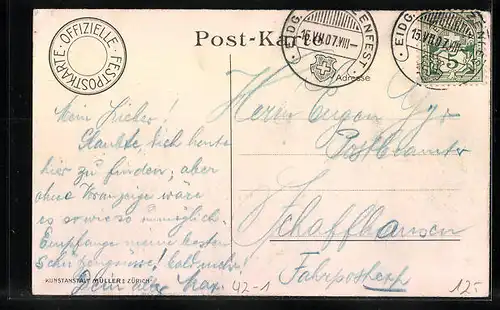 · OFFIZIELLE · FESTPOSTKARTE
Post-Karte
EIDG. ENFEST
15.VII.07.VIII–
EIDG.
15.VII.07.VIII–
5
Adresse
Mein Lieber!
Glaubte, dich heute
hier zu finden; aber
ohne Voranzeige wäre
es so wieso unmöglich.
Empfange meine besten
Schützengrüsse! bald mehr!
Dein alter Max.
Herrn Eugen
Postbeamter
Schaffhausen
Fahrpost
KUNSTANSTALT MÜLLER & ZÜRICH
42-1
12.-